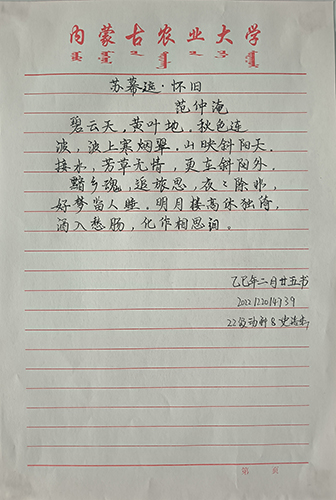 内蒙古农业大学
苏幕遮·怀旧
范仲淹
碧云天，黄叶地，秋色连
波，波上寒烟翠。山映斜阳天
接水，芳草无情，更在斜阳外。
黯乡魂，追旅思，夜夜除非，
好梦留人睡。明月楼高休独倚，
酒入愁肠，化作相思泪。
乙巳年二月廿五书
2022122014939
22级动科8史
第 页